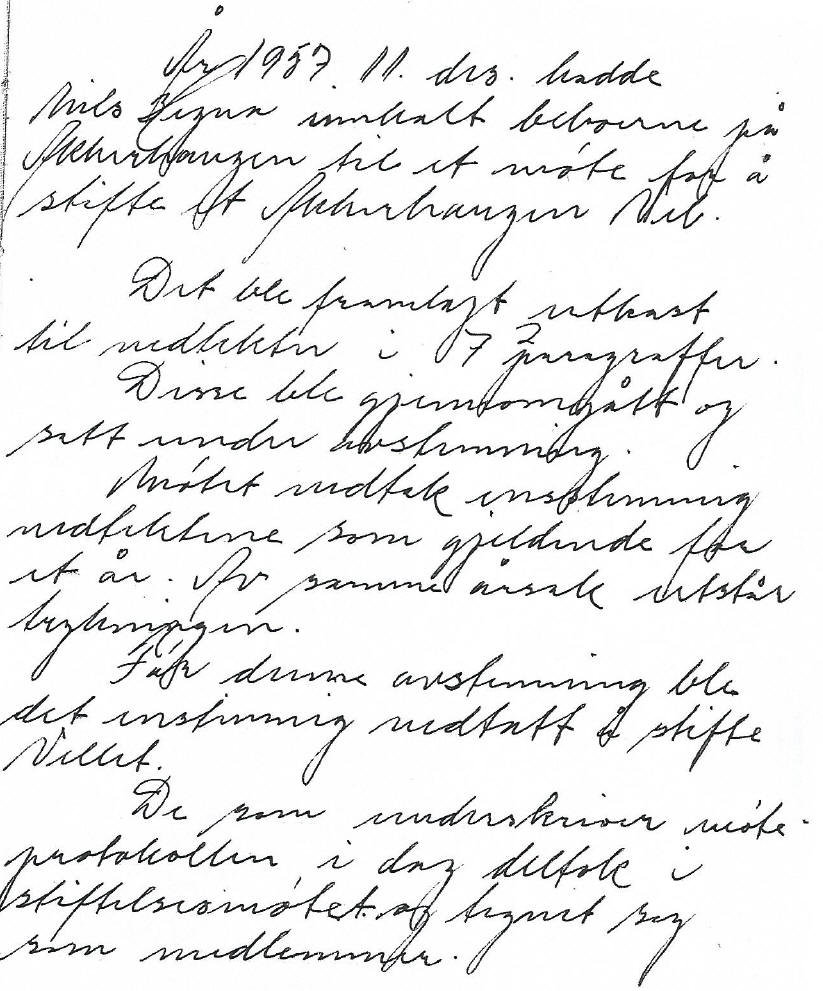 År 1957 11. des. hadde
Nils innkalt beboerne på
til et møte for å
stifte et Vel.
Det ble framlagt utkast
til vedtekter i 7 paragraffer.
Disse ble gjennomgått og
satt under avstemming.
Møtet vedtok enstemmig
vedtektene som gjeldende for
et år. Av samme årsak utstår
trykningen.
Før denne avstemming ble
det enstimmig vedtatt å stifte
Vellet.
De som underskriver møte-
protokollen i dag deltok i
stiftelsesmøtet og tegnet seg
som medlemmer.